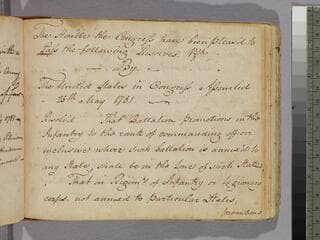 The Honble the Congress have been pleas'd to
Pass the following Resolves
By
The United States in Congress Assembled
25th May 1781
Resolved That Battalion promotions in the
Infantry to the rank of commanding officer
inclusive where such battalion is annex'd to
any State, shall be in the Line of such State,
That in Regimts of Infantry or Legionary
corps not annex'd to particular States,
promotions